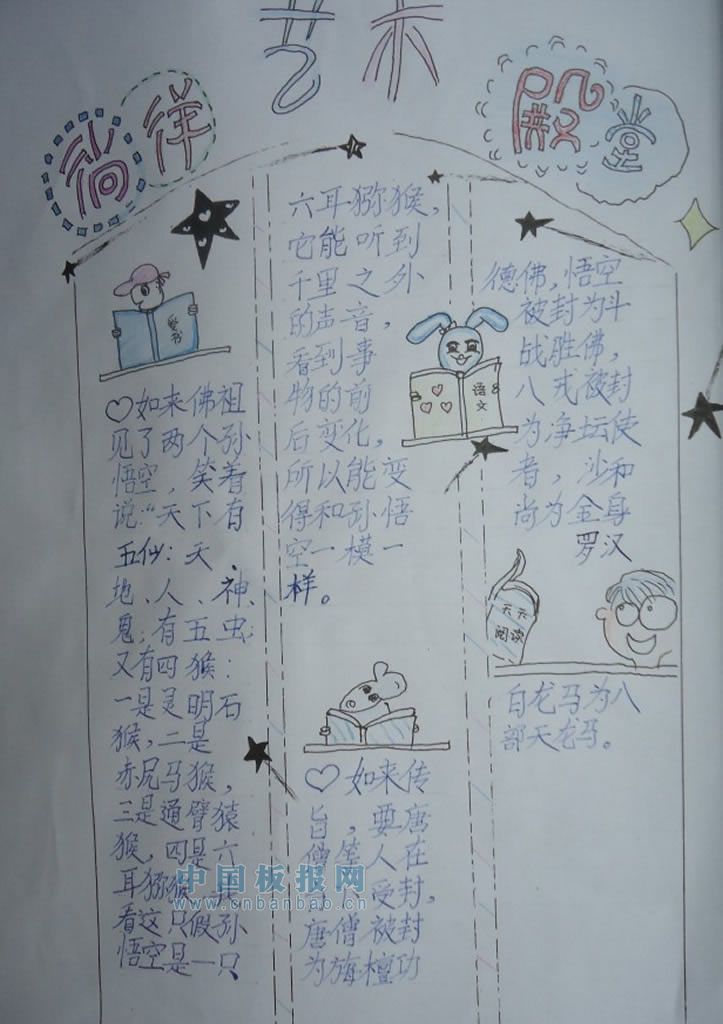 徜徉
艺术
殿堂
爱书
♡如来佛祖
见了两个孙
悟空，笑着
说：“天下有
五仙：天、
地、人、神、
鬼；有五虫；
又有四猴：
一是灵明石
猴，二是
赤尻马猴，
三是通臂猿
猴，四是六
耳猕猴。我
看这只假孙
悟空是一只
六耳猕猴，
它能听到
千里之外
的声音，
看到事
物的前
后变化，
所以能变
得和孙悟
空一模一
样。
♡如来传
旨，要唐
僧等人在
受封，
唐僧被封
为旃檀功
语文
德佛，悟空
被封为斗
战胜佛，
八戒被封
为净坛使
者，沙和
尚为金身
罗汉
天天
阅读
白龙马为八
部天龙马。
中国板报网
www.cnbanbao.cn